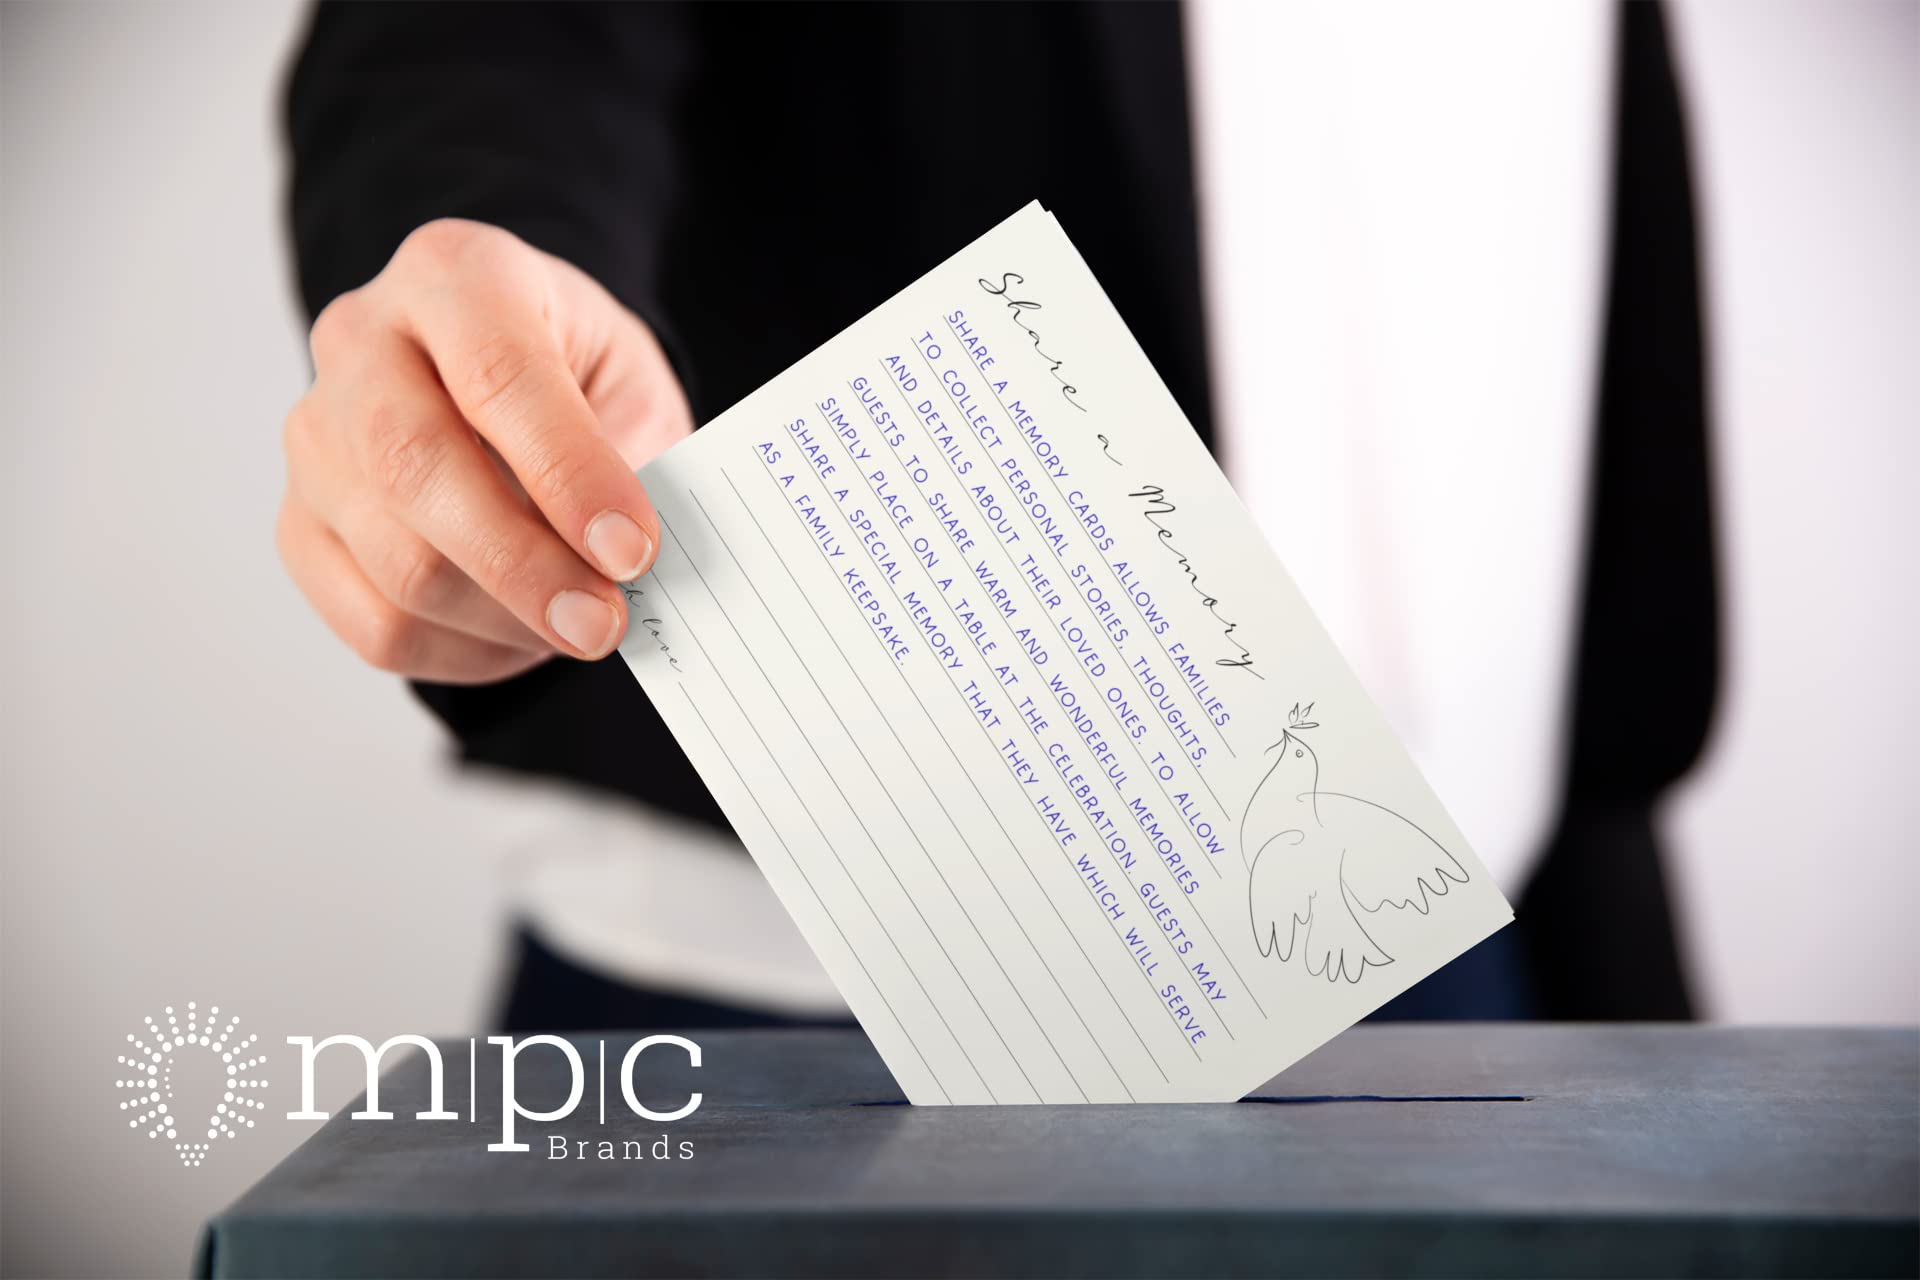 Share a Memory
SHARE A MEMORY CARDS ALLOWS FAMILIES
TO COLLECT PERSONAL STORIES, THOUGHTS,
AND DETAILS ABOUT THEIR LOVED ONES. TO ALLOW
GUESTS TO SHARE WARM AND WONDERFUL MEMORIES
SIMPLY PLACE ON A TABLE AT THE CELEBRATION. GUESTS MAY
SHARE A SPECIAL MEMORY THAT THEY HAVE WHICH WILL SERVE
AS A FAMILY KEEPSAKE.
love
m|p|c
Brands